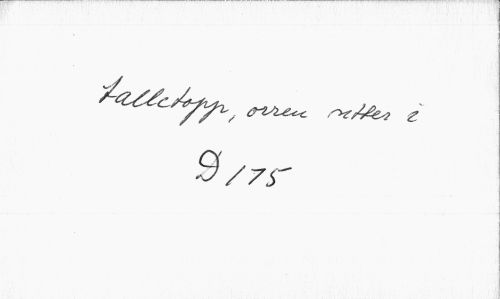 talletopp, orren sitter i
D 175